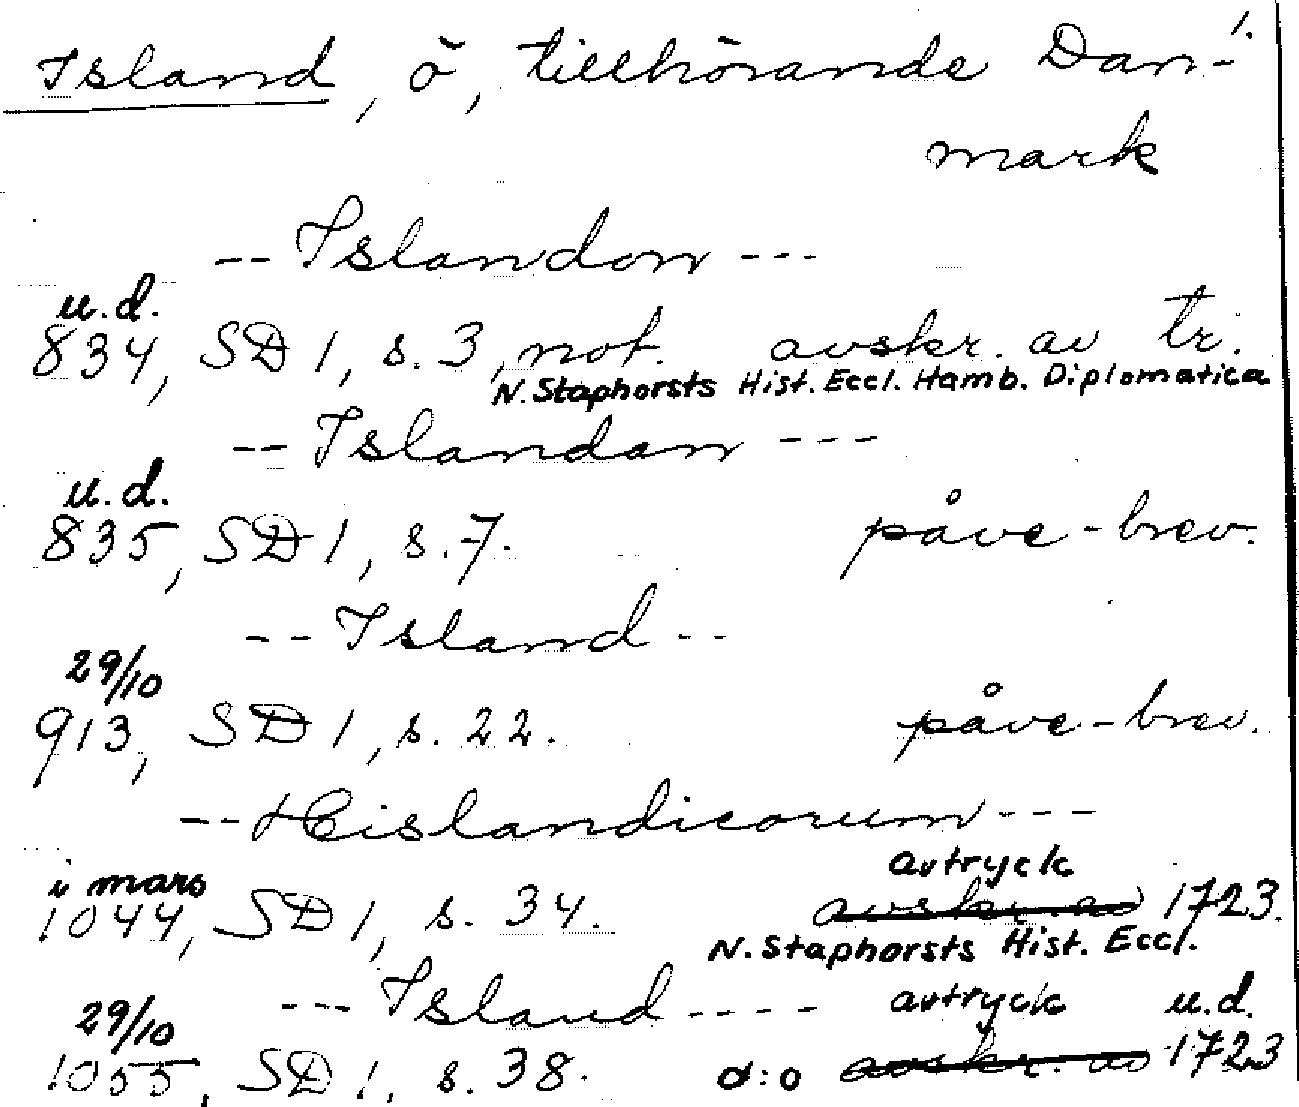 1.
Island, ö, tillhörande Dan-
mark
-- Islandon ---
u.d.
834, SD 1, s. 3, not. avskr. av tr.
N. Staphorsts Hist. Eccl. Hamb. Diplomatica
-- Islandan ---
u.d.
835, SD 1, s. 7. påve-brev.
-- Island --
29/10
913, SD 1, s. 22. påve-brev.
-- Hislandicorum ---
i mars avtryck
1044, SD 1, s. 34. avskr. av 1723.
N. Staphorsts Hist. Eccl.
--- Island ---- avtryck u.d.
29/10
1055, SD 1, s. 38. d:o avskr. av 1723